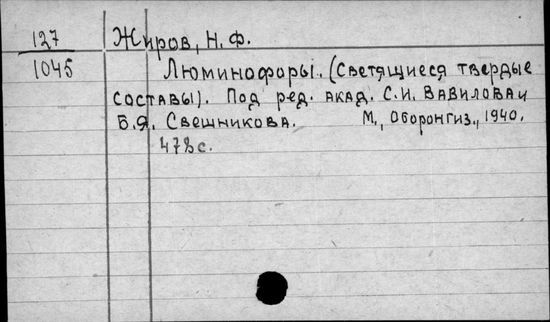 127 Жиров, Н. Ф.
1045 Люминофоры. (Светящиеся твердые
составы). Под ред. акад. С.И. Вавилова и
Б.Я. Свешникова. М., Оборонгиз., 1940.
478 с.